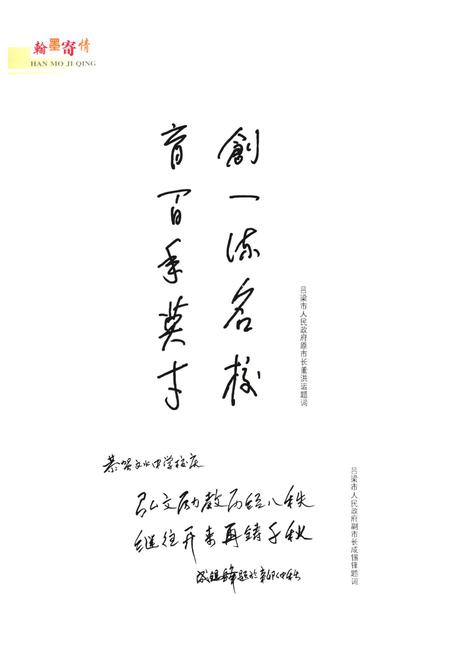 翰墨寄情
HAN MO JI QING
創一流名校
育百年英才
吕梁市人民政府原市长董洪运题词
恭贺文水中学校庆
弘文励教历经八秩
继往开来再铸千秋
成锡锋题於辛卯仲秋
吕梁市人民政府副市长成锡锋题词